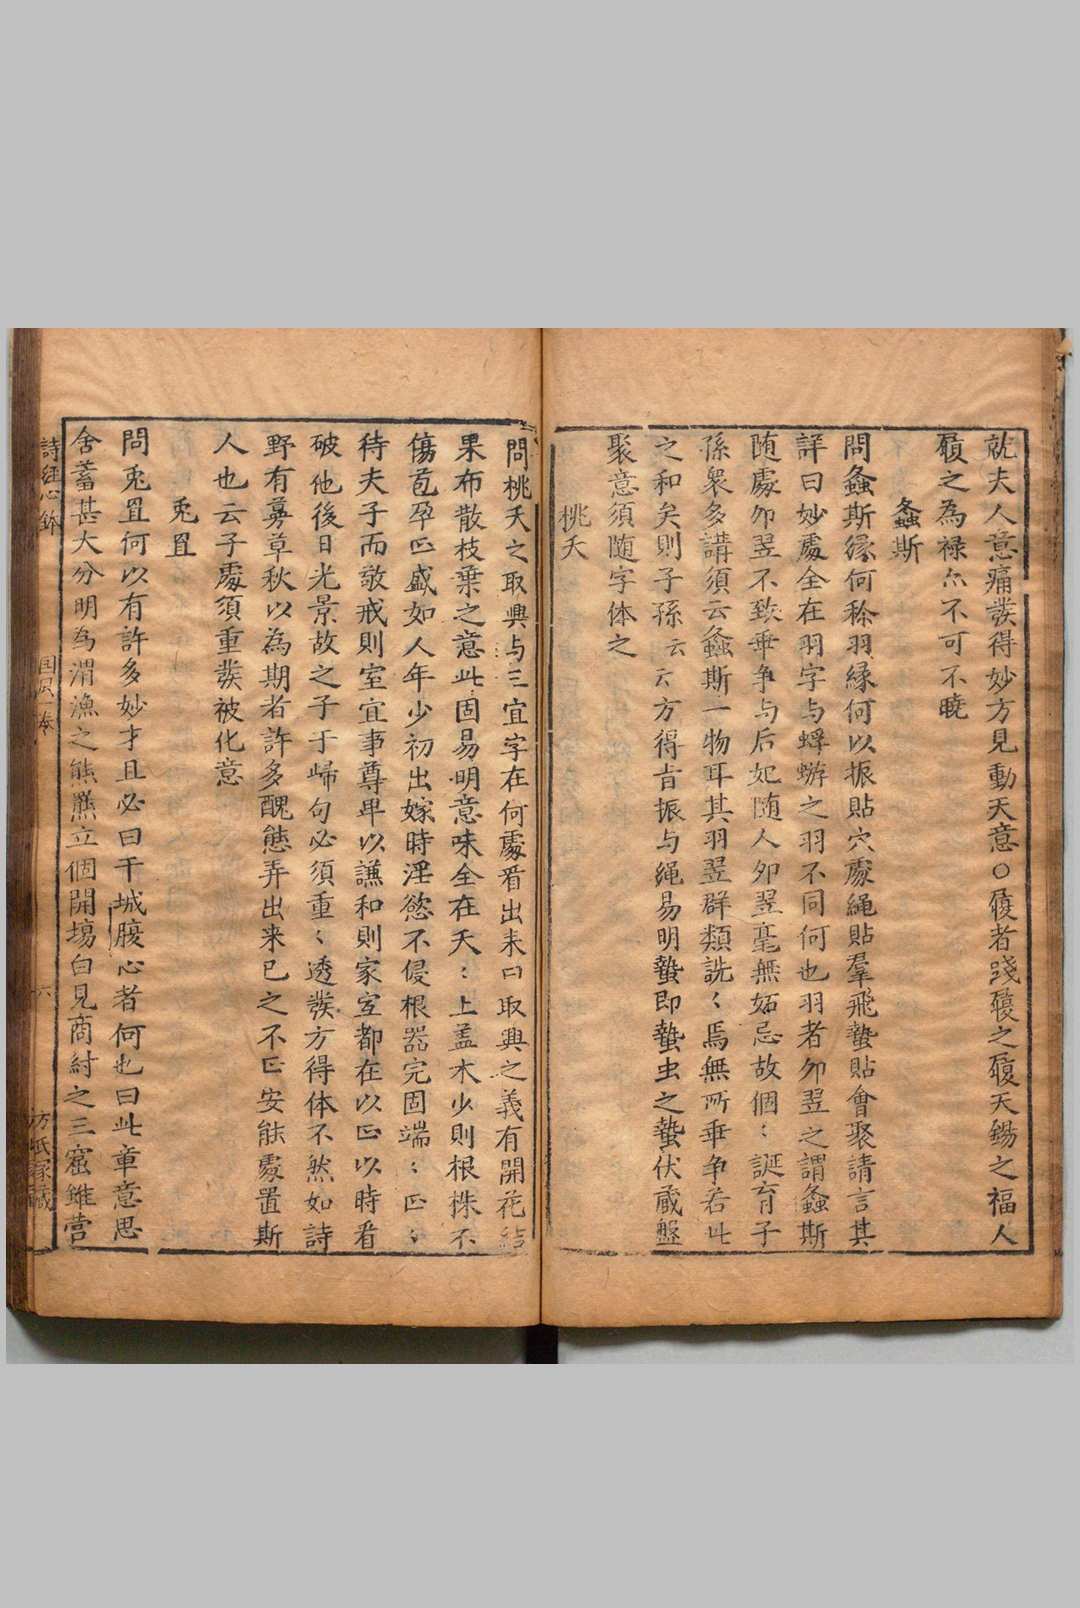 就夫人意痛發得妙方見動天意○履者踐履之履天錫之福人
履之為祿尒不可不曉
螽斯
問螽斯緣何称羽緣何以振貼穴處繩貼羣飛蟄貼會聚請言其
詳曰妙處全在羽字与蜉蝣之羽不同何也羽者夘翌之謂螽斯
随處夘翌不致乖争与后妃随人夘翌毫無妬忌故個〻誕育子
孫衆多講須云螽斯一物耳其羽翌群類詵〻焉無所乖争若此
之和矣則子孫云云方得旨振与繩易明蟄即蟄虫之蟄伏藏盤
聚意須随字体之
桃夭
問桃夭之取興与三宜字在何處看出来曰取興之義有開花結
果布散枝葉之意此固易明意味全在夭〻上盖木少則根株不
傷苞孕正盛如人年少初出嫁時淫慾不侵根器完固端〻正〻
待夫子而敬戒則室宜事尊卑以謙和則家宜都在以正以時看
破他後日光景故之子于歸句必須重〻透發方得体不然如詩
野有蔓草秋以為期者許多醜態弄出来已之不正安能處置斯
人也云子處須重發被化意
兎罝
問兎罝何以有許多妙才且必曰干城腹心者何也曰此章意思
含蓄甚大分明為渭漁之熊羆立個開塲白見商紂之三窟雖营
詩經心鉢
国風一卷
六
方氏家藏